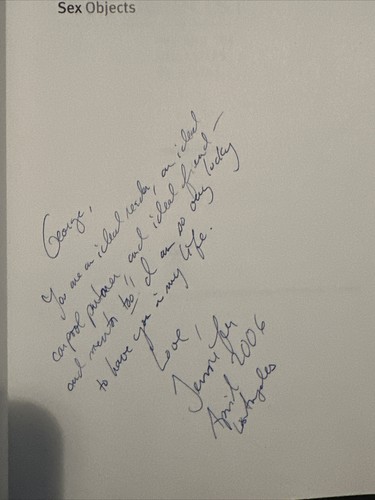 Sex Objects
George,
You are an ideal reader, an ideal
carpool partner, and ideal friend—
and mentor too! I am so very lucky
to have you in my life.
Love,
Jennifer
April 2006
Los Angeles